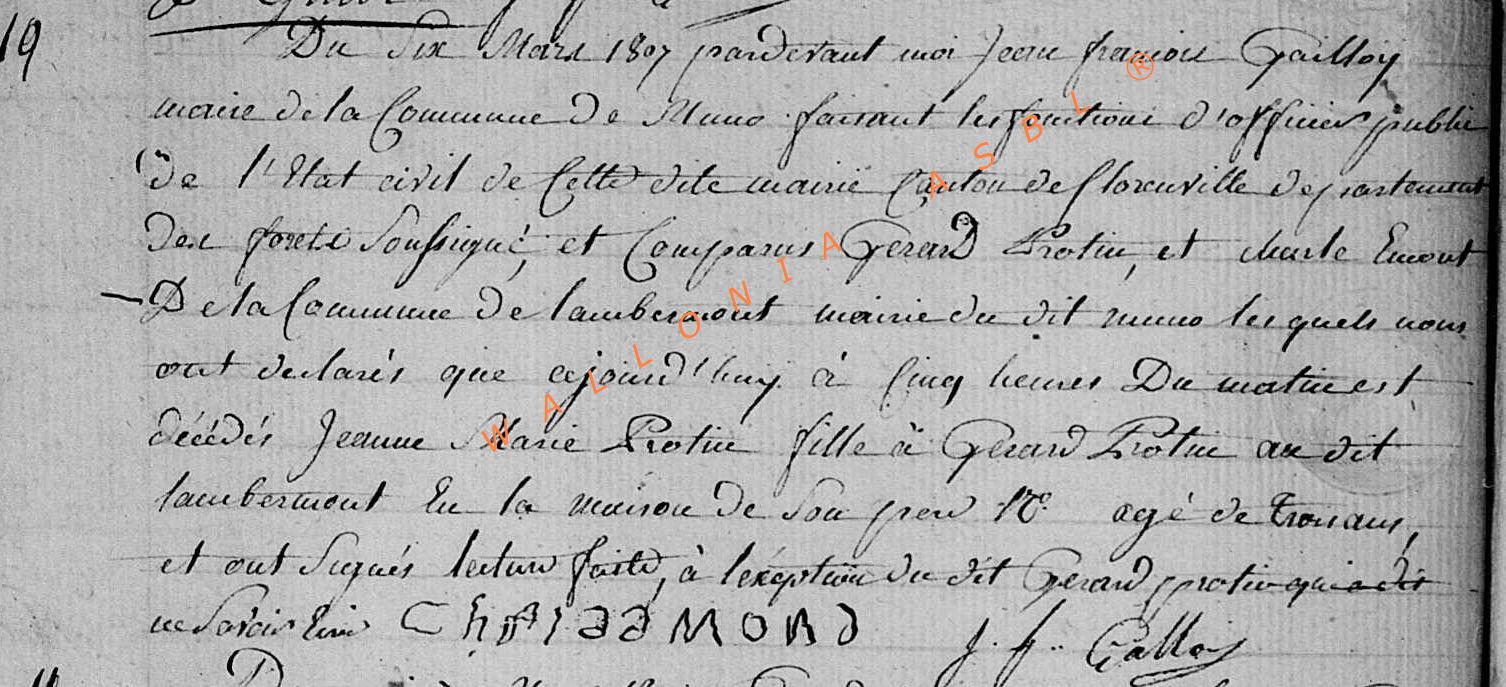 19
Du Six Mars 1807 pardevant moi Jean françois Gailloy
maire de la Commune de Muno faisant les fonctions d'officier public
de l'Etat civil de Cette dite mairie Canton de florenville departement
des forets Soussigné, et Comparus Gerard Protin, et charle Emont
De la Commune de lambermont mairie du dit muno lesquels nous
ont declarés que ajourd'huy à Cinq heures Du matin est
décédés Jeanne Marie Protin fille à Gerard Protin au dit
lambermont En la maison de Son pere N° agé de trois ans,
et ont Signés lecture faite, à l'exéption du dit Gerard protin qui a dit
ne Savoir
J. f. Galloy
WALLONIA ASBL ®